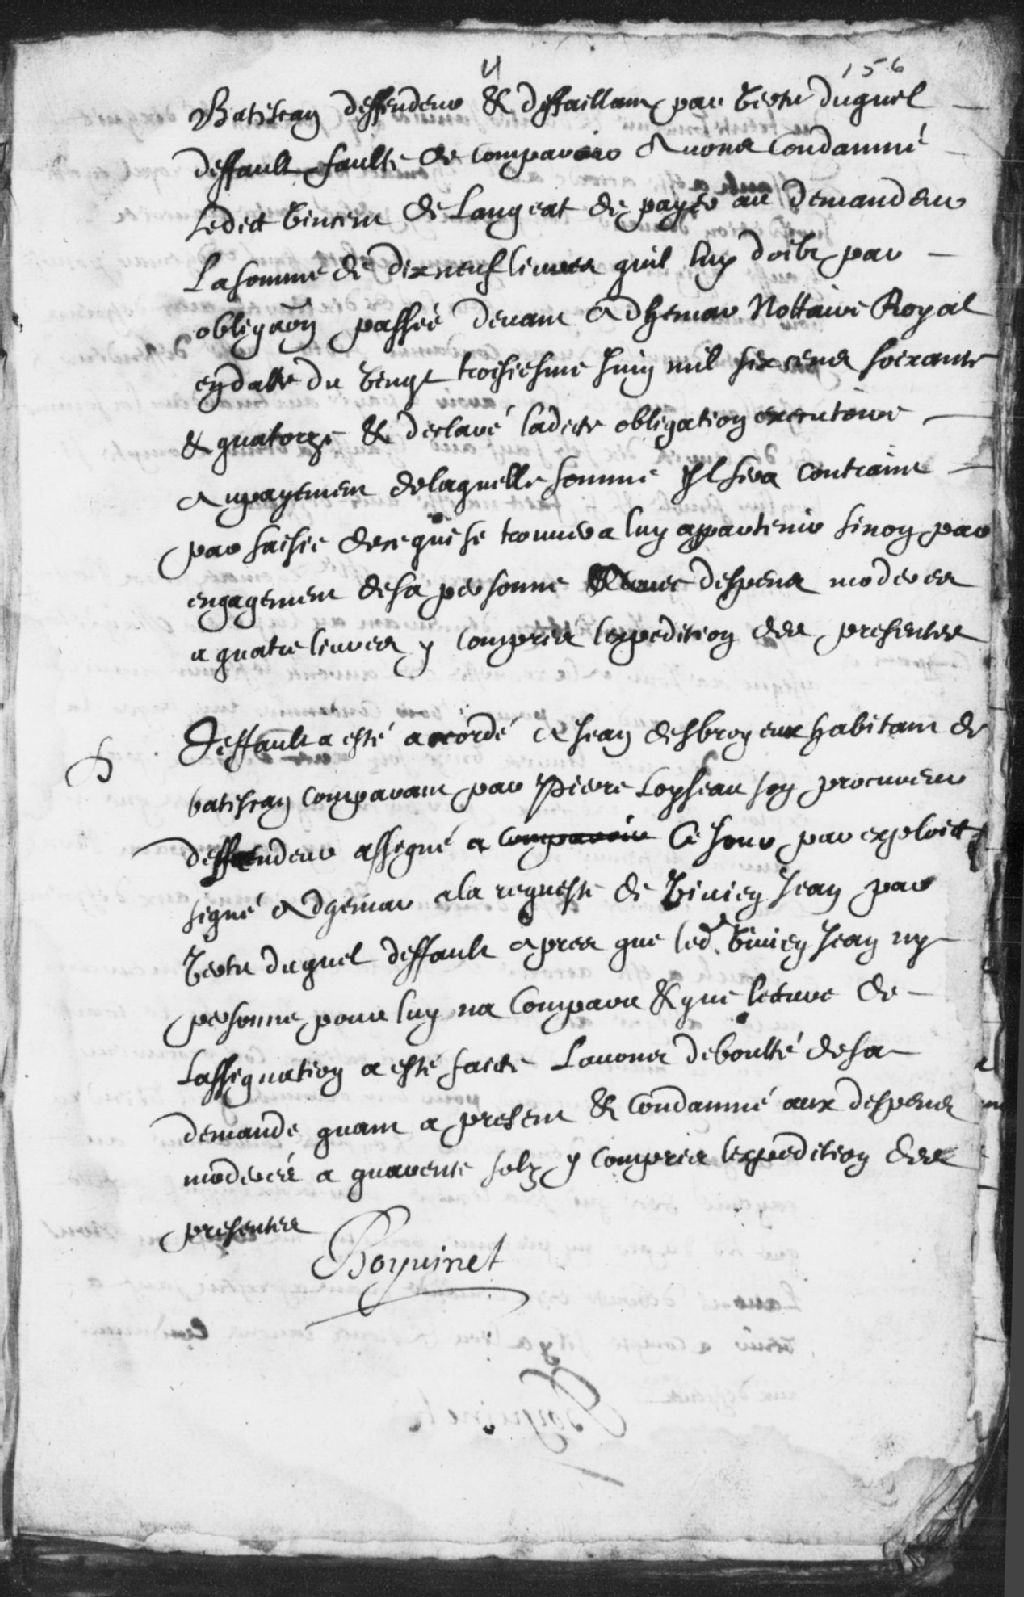 4
156
Batiscan deffendeur & deffaillant par vertu duquel
deffault faulte de comparoir Avons Condamné
Ledict Vincent de Langeat de payer au demandeur
La somme de dix neuf livres quil luy doibt par
obligaon passée devant Adhemar Nottaire Royal
en datte du vingt troisiesme Juin mil six cens soixante
& quatorze & declaré ladite obligation executoire
Au payement de laquelle somme Il sera contraint
par saisie de ce qui se trouvera luy appartenir sinon par
engagement de sa personne Avec despens moderes
a quatre livres y compris lexpedition des presentes
Deffault a esté accordé A Jean desbroyeux habitant de
batiscan comparant par Pierre Loyseau son procureur
deffendeur assigné a comparoir Ce Jour par exploict
signé Adhemar a la requeste de Vivien Jean par
Vertu duquel deffault Apres que led. Vivien Jean ny
personne pour luy na Comparu & que lecture de
Lassignation a esté faicte Lavons deboutté de sa
demande quant a present & condamné aux despens
moderés a quarente solz y compris lexpedition des
presentes
Boyvinet